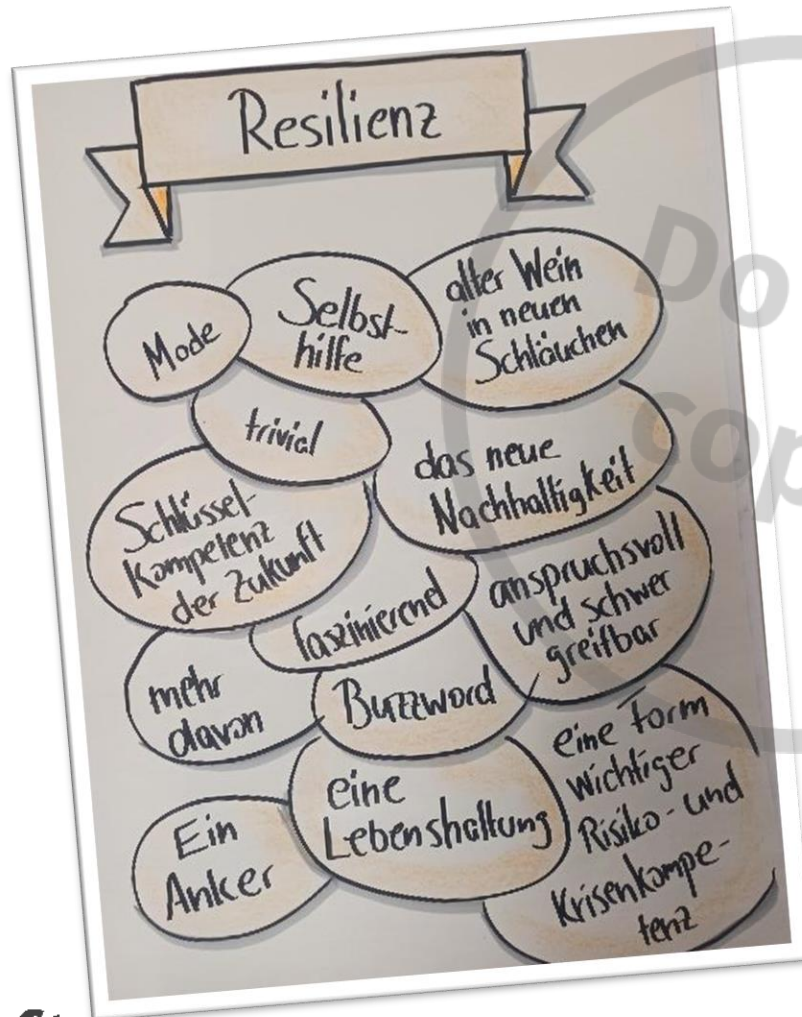 Resilienz
Mode
Selbst-
hilfe
alter Wein
in neuen
Schläuchen
trivial
das neue
Nachhaltigkeit
Schlüssel-
Kompetenz
der Zukunft
faszinierend
anspruchsvoll
und schwer
greifbar
mehr
davon
Buzzword
eine Form
wichtiger
Risiko- und
Krisenkompe-
tenz
eine
Lebenshaltung
Ein
Anker
Do
cop